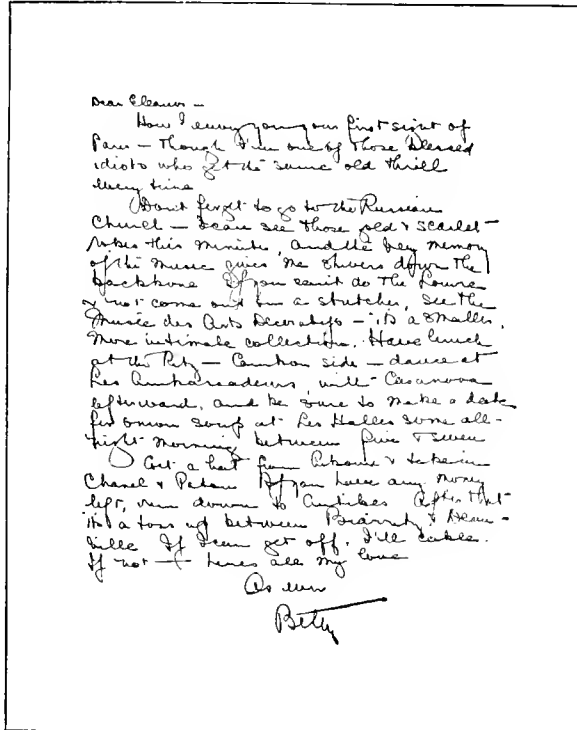 Dear Eleanor –
How I envy you your first sight of
Paris – Though I'm one of those blessed
idiots who get the same old thrill
every time
Don't forget to go to the Russian
Church – I can see those gold & scarlet
robes this minute, and the very memory
of the music gives me shivers down the
backbone If you can't do the Louvre
& not come out on a stretcher, see the
Musée des Arts Decoratifs – it's a smaller,
more intimate collection. Have lunch
at the Ritz – Cambon side – dance at
Les Ambassadeurs, with Casanova
afterward, and be sure to make a date
for onion soup at Les Halles some all-
night morning between five & seven
Get a hat from & take in
Chanel & Patou If you have any money
left, run down to Antibes After that
it's a toss up between Biarritz & Deau-
ville If I can get off, I'll cable.
If not – here's all my love
As ever
Betty